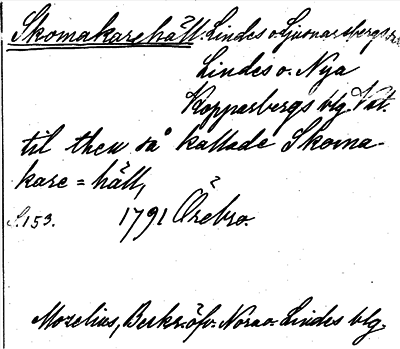 Skomakarehäll. Lindes o Ljusnarsbergs
Lindes o. Nya
Kopparbergs blg. Väst.
til then så kallade Skoma-
kare=häll,
S.153. 1791 Örebro.
Mozelius, Beskr. öfv. Nora o. Lindes blg.